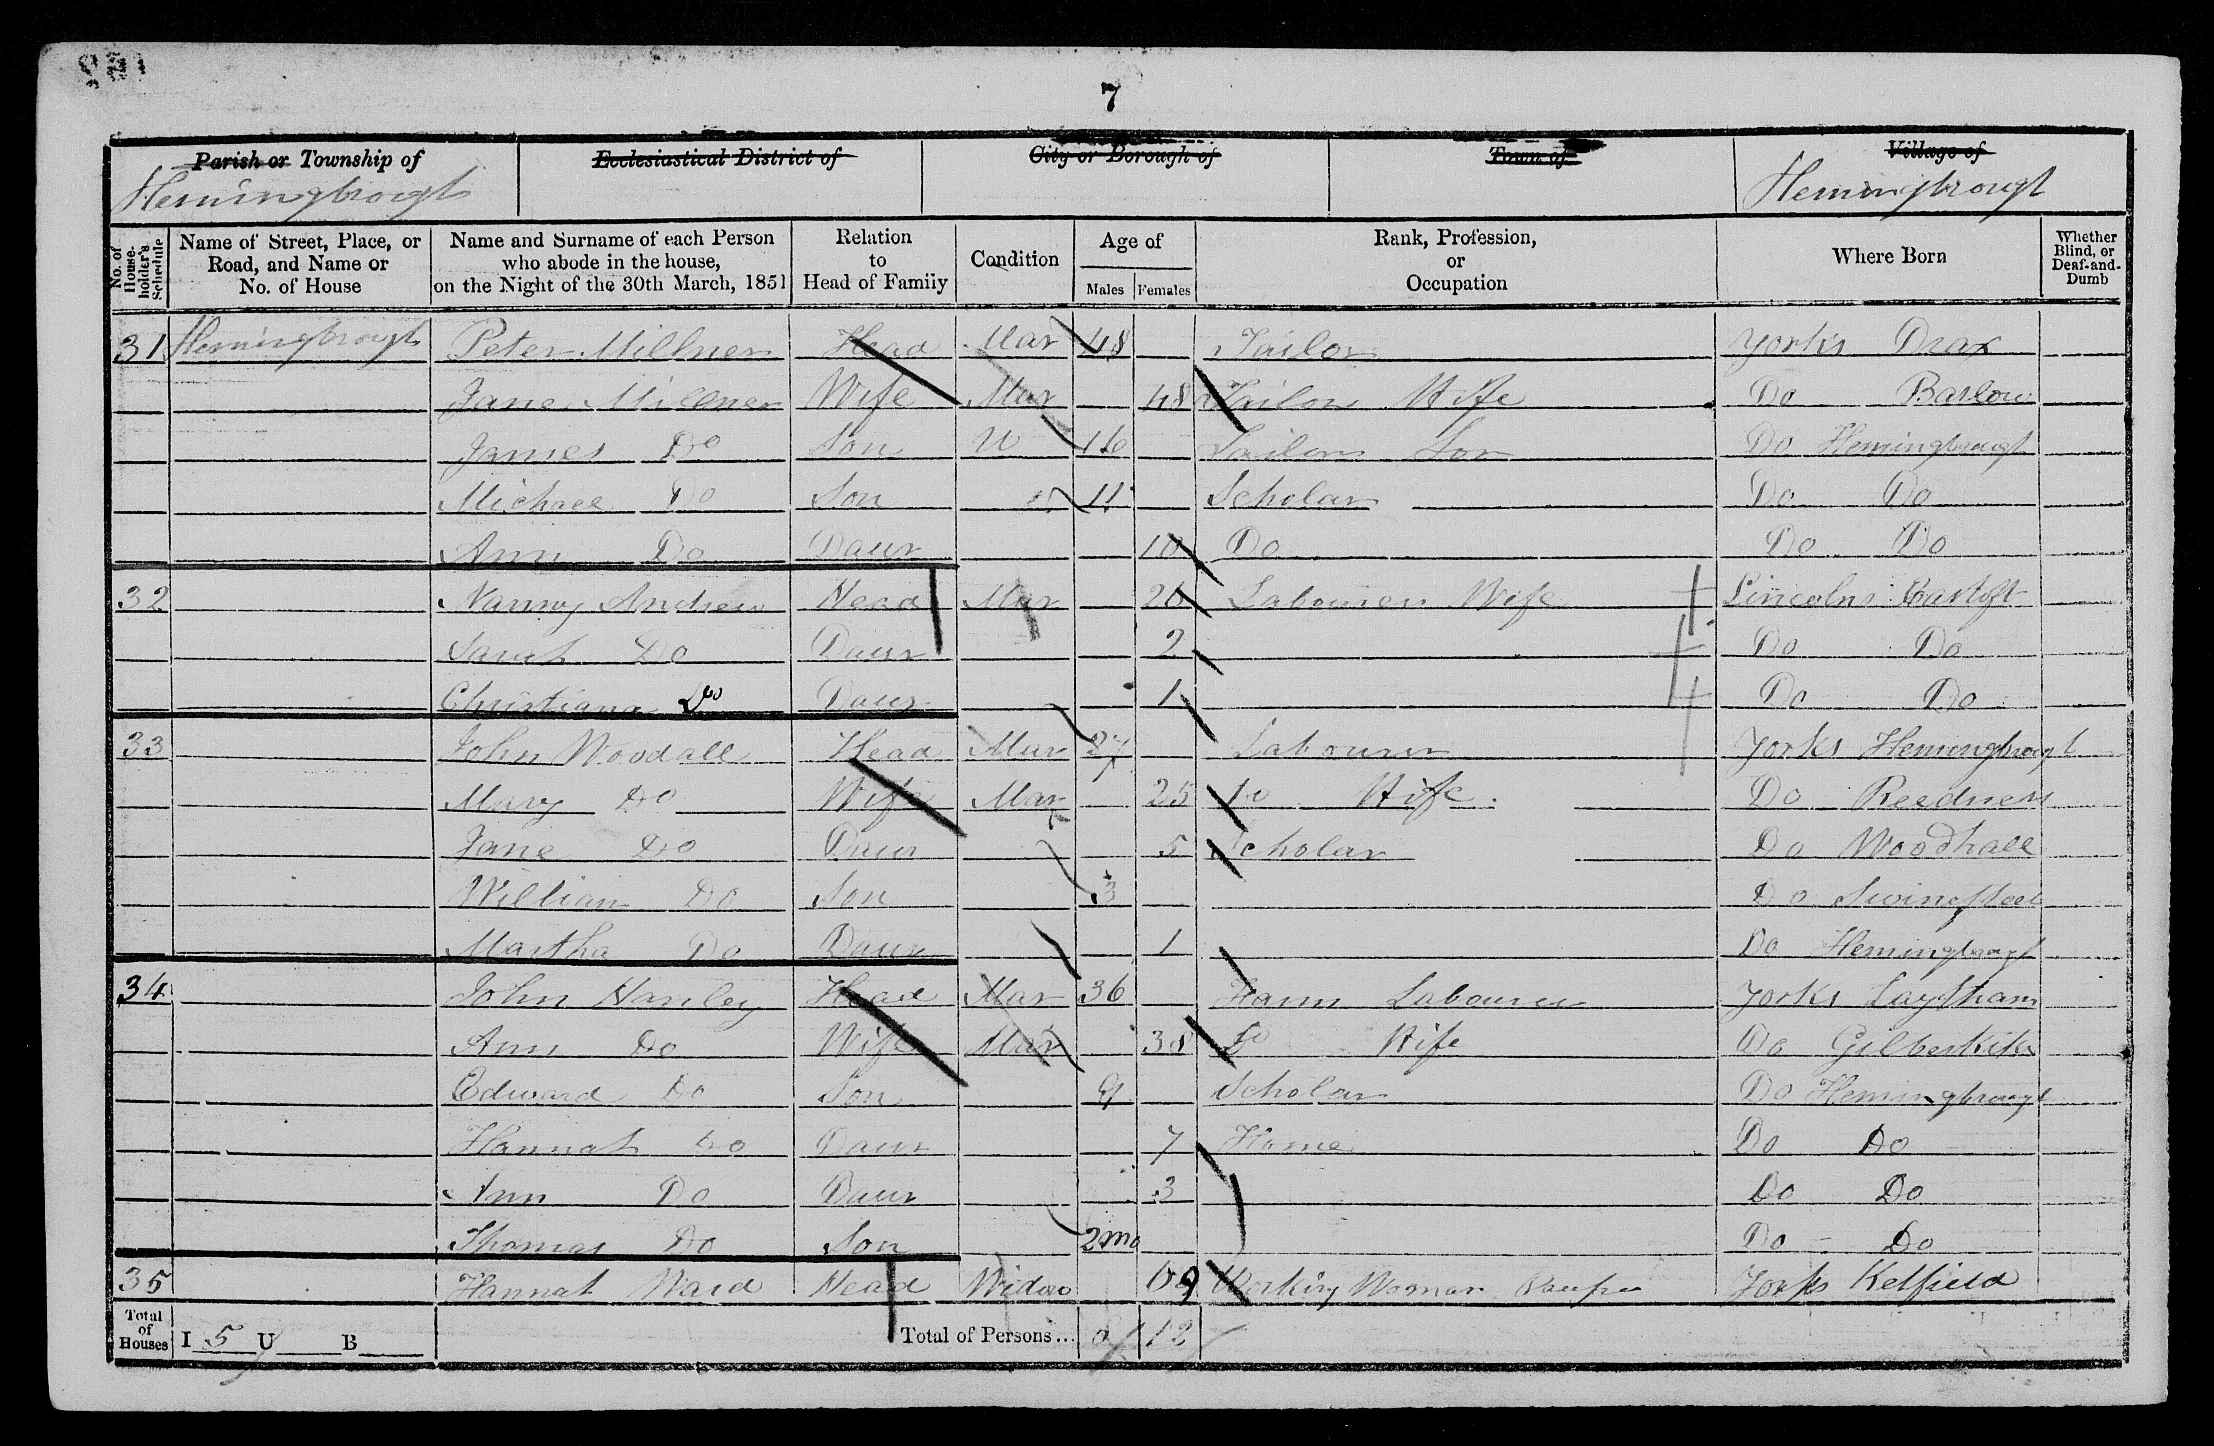 7
Parish or Township of Ecclesiastical District of City or Borough of Town of Village of
Hemingbrough Hemingbrough
No. of House-holder's Schedule Name of Street, Place, or Road, and Name or No. of House Name and Surname of each Person who abode in the house, on the Night of the 30th March, 1851 Relation to Head of Family Condition Age of Males Females Rank, Profession, or Occupation Where Born Whether Blind, or Deaf-and-Dumb
31 Hemingbrough Peter Millner Head Mar 48 Tailor Yorks Drax
Jane Millner Wife Mar 48 Tailors Wife Do Barlow
James Do Son U 16 Tailors Son Do Hemingbrough
Michael Do Son 11 Scholar Do Do
Ann Do Daur 10 Do Do Do
32 Nanny Andrew Head Mar 26 Labourers Wife Lincolns
Sarah Do Daur 2 Do Do
Christiana Do Daur 1 Do Do
33 John Woodall Head Mar 27 Labourer Yorks Hemingbrough
Mary Do Wife Mar 25 Do Wife Do Reedness
Jane Do Daur 5 Scholar Do Woodhall
William Do Son 3 Do Swinefleet
Martha Do Daur 1 Do Hemingbrough
34 John Hanley Head Mar 36 Farm Labourer Yorks Laytham
Ann Do Wife Mar 38 Do Wife Do
Edward Do Son 9 Scholar Do Hemingbrough
Hannah Do Daur 7 Home Do Do
Ann Do Daur 3 Do Do
Thomas Do Son 2mo Do Do
35 Hannah Ward Head Widow 69 Working Woman Pauper Yorks Kelfield
Total of Houses I 5 U B Total of Persons... 9 12